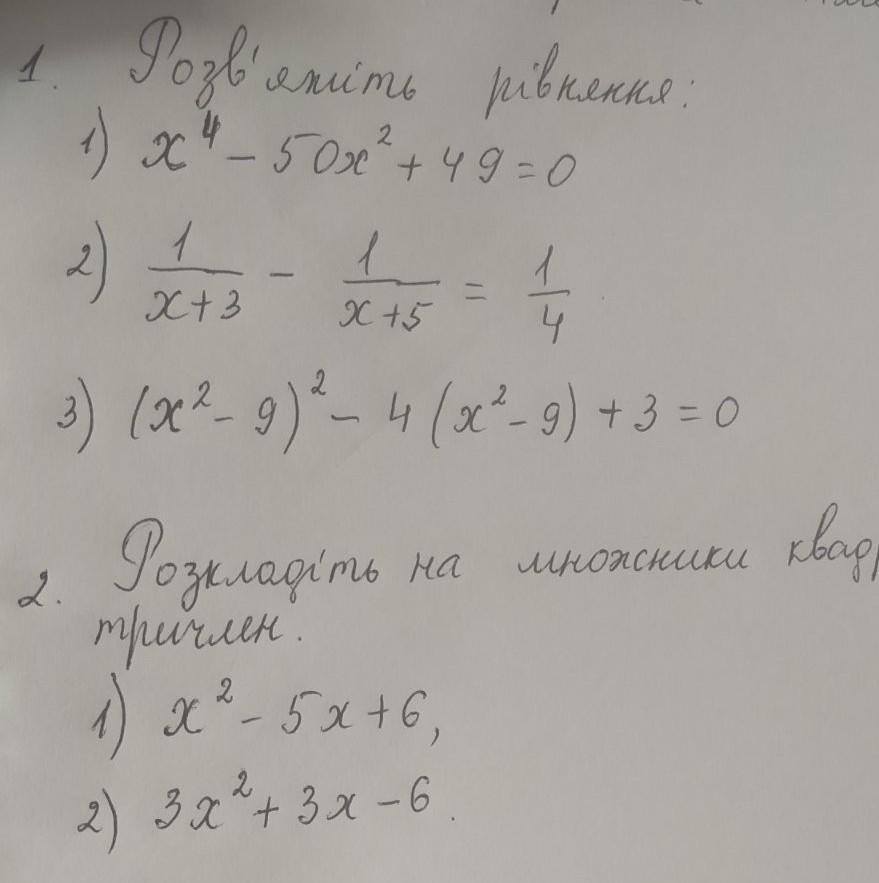 1. Розв'яжіть рівняння:
1) x⁴ - 50x² + 49 = 0
2) 1/(x+3) - 1/(x+5) = 1/4
3) (x² - 9)² - 4(x² - 9) + 3 = 0
2. Розкладіть на множники
тричлен.
1) x² - 5x + 6,
2) 3x² + 3x - 6.